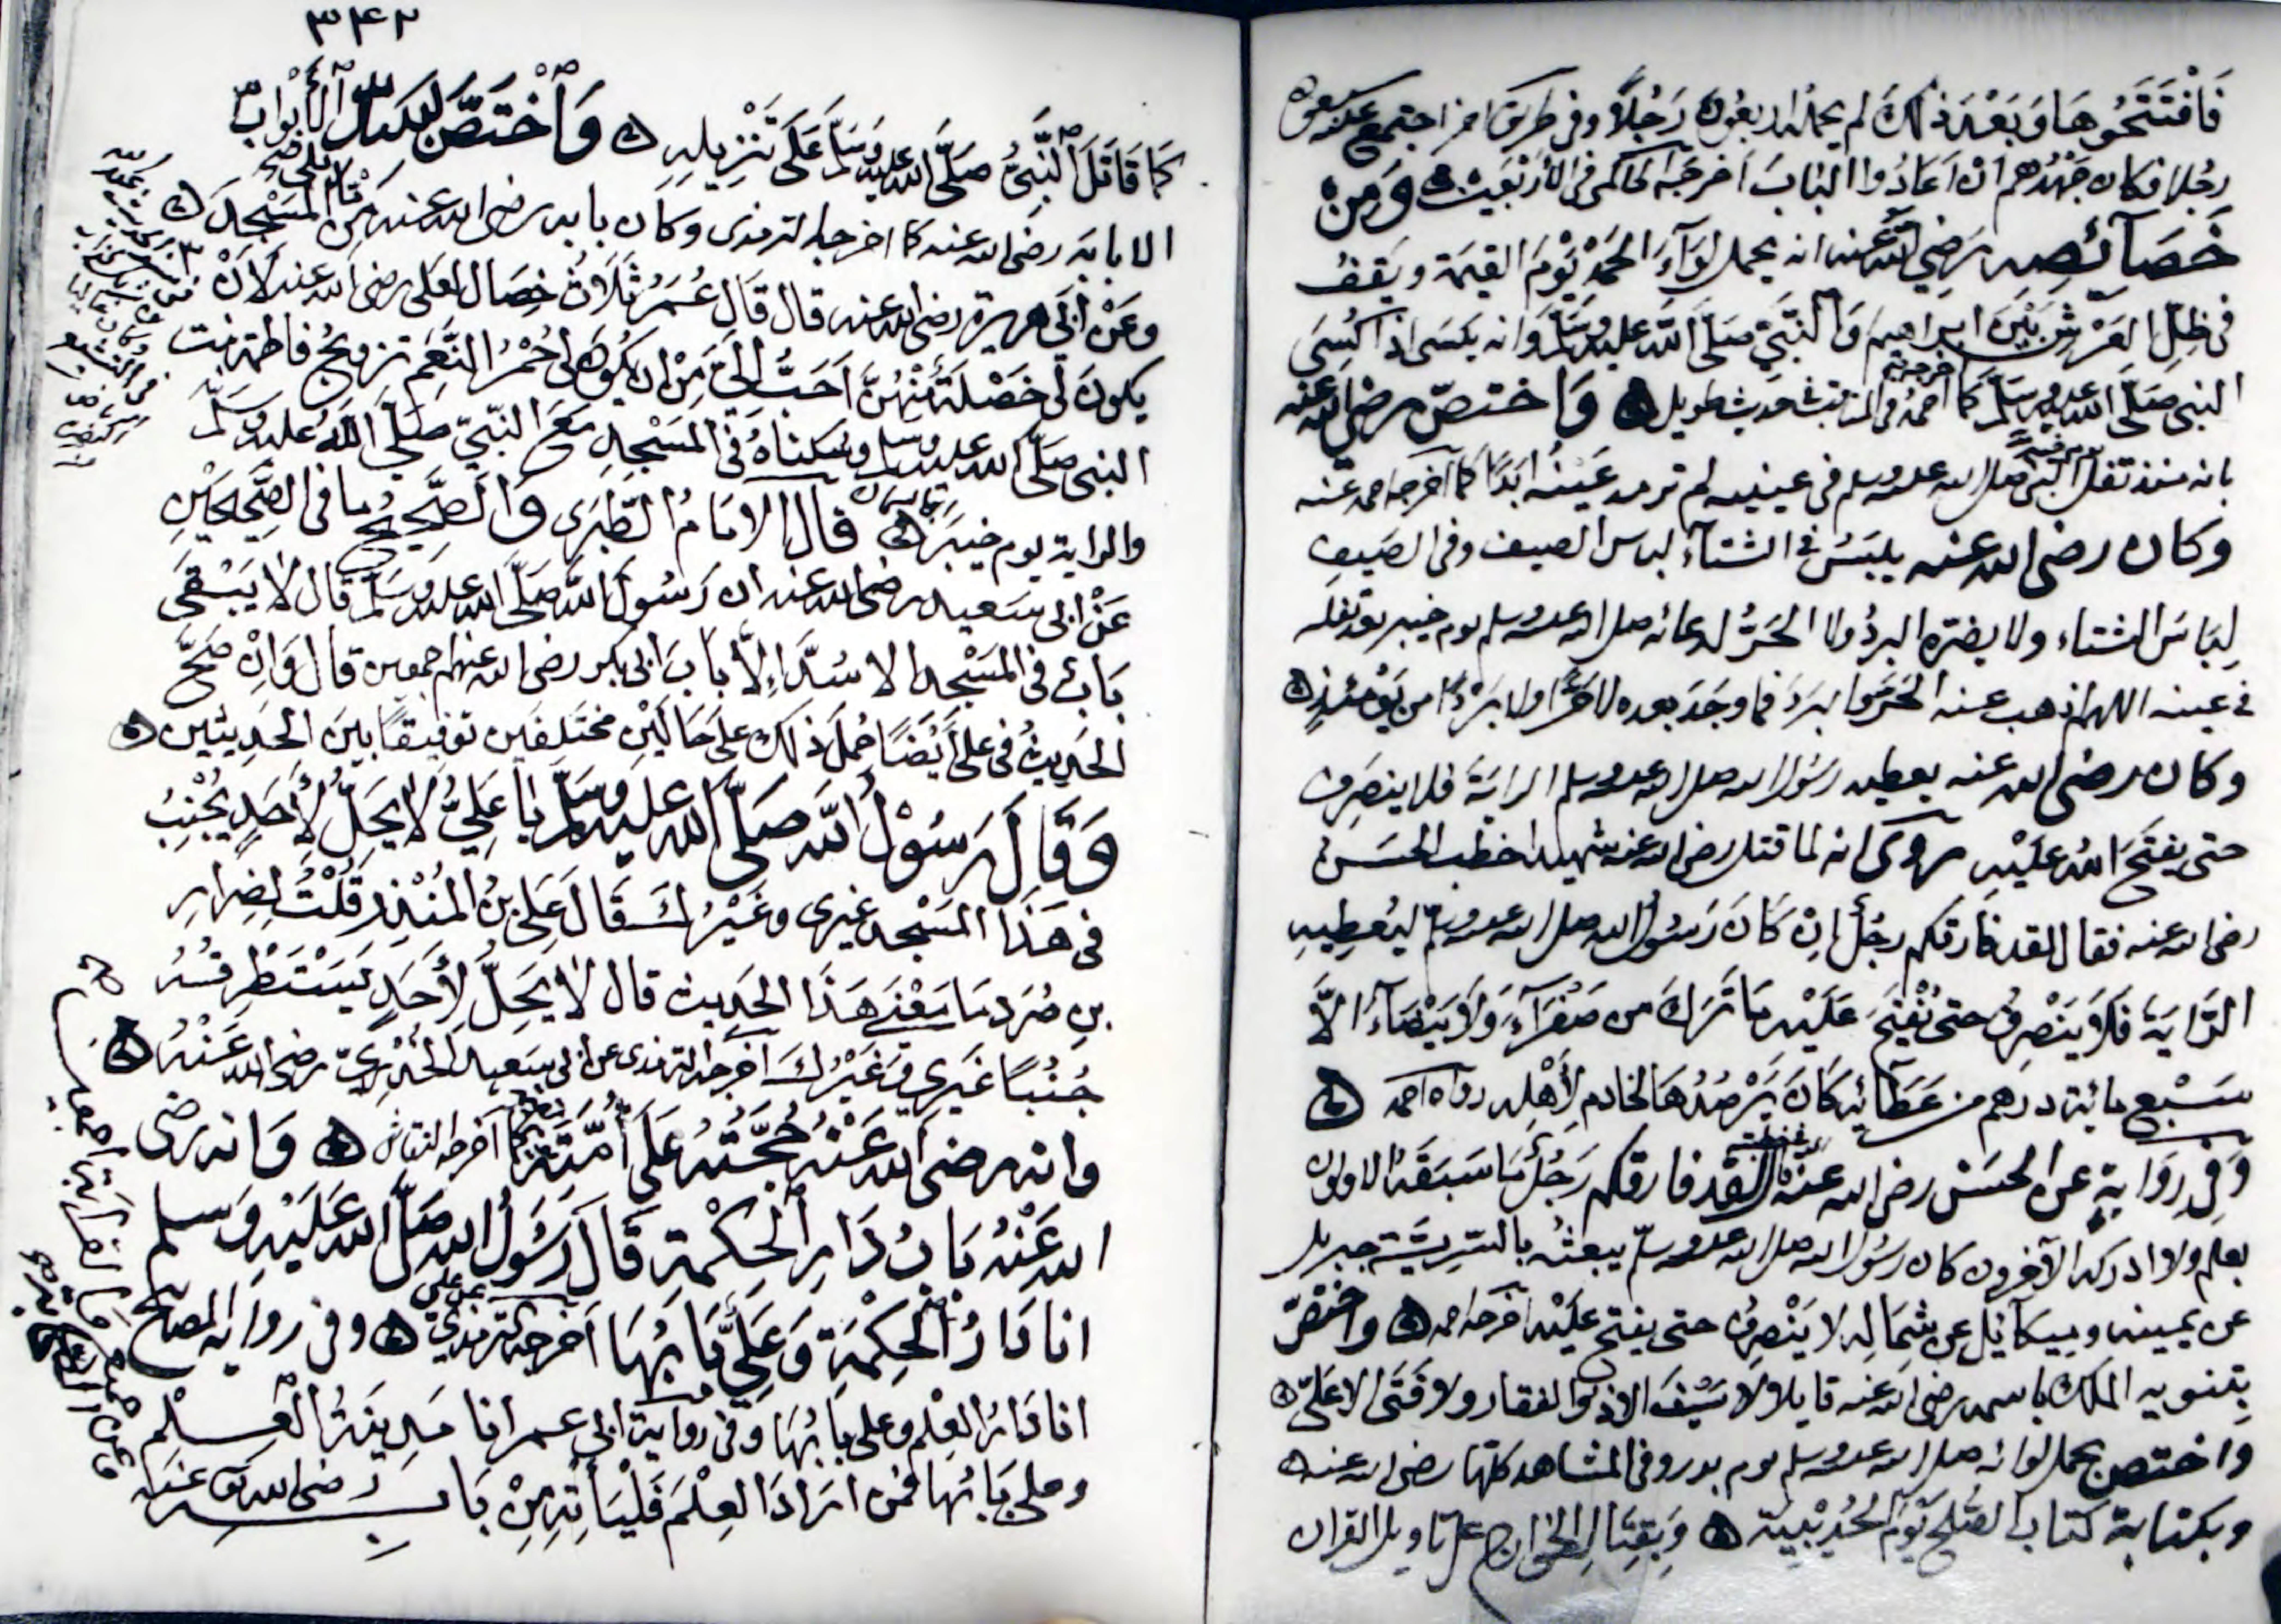 فَافْتَتَحُوهَا وَبَعْدَ ذلك لم يحمله اربعُون رَجُلاً وفى طريق اخر اجتمع عليه سبعون
رجُلا فكان جَهْدهم ان اعَادُوا البَابَ اخرجَه الحاكمى فى الأرْبَعِين وَمِنْ
خَصَآئِصِه رَضِيَ اللهُ عنه انه يحمل لِوَآءَ الحَمْدِ يَوْمَ القيمة ويَقف
فى ظِلِّ العَرْشِ بَيْنَ ابراهيم وَالنَّبِيِّ صَلَّى اللهُ عليه وسَلَّم وَانه يكسَى اذا كُسِىَ
النبى صَلَّى الله عليه وسَلَّم كما اخرجه احمدُ فى المناقب فى حديث طويل وَاختصّ رضى الله عنه
بانه منذ تفل النبى صلى الله عليه وسلم فى عينيه لم ترمد عَينُه ابَدًا كما اخرجه احمد عنه
وكان رضى الله عنه يلبَسُ فى الشتآءِ لباس الصيف وفى الصَيفِ
لِبَاسَ الشتاء ولا يضرّه البردُ ولا الحَرُّ لدعائه صلى الله عليه وسلم يوم خيبر بعد تفله
فى عينه اللهم اذهب عنه الحَرَّ والبَردَ فما وجَدَ بعده لا حَرًّا ولا بَرْدًا من يَوْمئذٍ
وكان رضى الله عنه يعطيه رسُول الله صلى الله عليه وسلم الرايَةَ فلا ينصَرِف
حتى يفتحَ اللهُ عَلَيْهِ روى انه لما قتل رضى الله عنه شهيدا خطب الحَسَن
رضى الله عنه فقال لقد فارقكم رجُل اِنْ كَانَ رَسُول الله صلى الله عليه وسلّم ليُعطِيه
الرَّايَةَ فَلَا يَنْصَرِفُ حتى تُفْتَحَ عَلَيْه مَا تَرَكَ من صَفْرَآءَ وَلَا بَيْضَآءَ الَّا
سَبْع مائة درهم من عَطَآئِه كَانَ يَرْصُدُهَا لخادمٍ لِأَهْلِه رواه احمد
وَفِى رِوَايةٍ عن الحَسَن رضى الله عنه لقد فارقكم رَجُل مَا سَبَقَهُ الاولون
بعلم ولا ادركه الآخرون كان رَسُول الله صلى الله عليه وسلّم يبعثُه بالسَّرِيَّة جبريل
عن يمينه وميكآئيل عن شِمَالِه لا يَنْصَرِفُ حتى يفتح عَلَيْه اخرجه احمد واختصّ
بتنويه الملك باسمه رضى الله عنه قايلا لا سَيْفَ الا ذو الفقار ولا فَتَى الا عَلِىّ
واختص بحمل لوائه صلى الله عليه وسلم يوم بدر وفى المشاهد كلها رضى الله عنه
وبكتابة كتاب الصُّلحِ يَوْمَ الحُدَيْبِيَة وَبِقِتَال الخوارج على تاويل القران
٣٤٢
كما قَاتَلَ النَّبِىُّ صَلَّى الله عليه وسَلَّم عَلَى تَنْزِيلِه وَاخْتَصَّ بسَدِّ الأَبْوَاب
الا بابَه رضى الله عنه كما اخرجه الترمذى وكان بابه رضى الله عنه مِنَ المَسْجِدَ
وعَنْ ابِى هريرة رضى الله عنه قال قَال عُمَرُ ثَلَاثُ خِصَال لعَلى رضى الله عنه لَانْ
يكونَ لى خَصْلَةٌ مِنْهُنَّ احَبُّ الىَّ مِنْ ان يكُونَ لى حُمْرُ النَّعَمِ تزويجُ فاطمة بنت
النبى صَلَّى الله عليه وسلم وسكناهُ فى المَسْجِدِ مَعَ النَّبِيّ صَلَّى اللهُ عليه وسَلَّم
والراية يوم خيبَرَ قال الامَامُ الطَّبَرَى وَالصَّحِيحُ ما فى الصَّحِيحَيْن
عَنْ ابى سَعيد رضى الله عنه ان رَسُول اللهِ صَلَّى الله عليه وسَلَّم قال لا يَبْقَى
بَابٌ فى المَسْجد الا سُدَّ اِلَّا بابَ ابى بكر رضى الله عنهم اجمعين قال وَاِنْ صَحَّ
الحديثُ فى على ايَضًا حُمِلَ ذلك على حَالَيْنِ مختَلِفَين توفيقًا بينَ الحَديثين
وَقَالَ رَسُوْلُ اللهِ صَلَّى الله عليه وسَلَّم يَا عَلِيُّ لَا يَحِلُّ لِأَحَدٍ يُجْنِبُ
فى هَذَا المَسْجد غيرى وغَيْرُكَ قَالَ عَلى بنُ المُنْذِر قُلْتُ لِضِرَارِ
بنِ صُرَد مَا مَعْنَى هَذَا الحَدِيث قال لَا يَحِلُّ لِأَحَدٍ يَسْتَطْرِقُهُ
جُنُبًا غَيرِي وَغَيْرُكَ اخرجه الترمذى عن ابى سَعيد الخُدْرِيّ رضى الله عَنْهُ
وانه رضى الله عَنْهُ حُجَّتُه عَلَى اُمَّتِه كما اخرجه النقاش وَانه رضى
الله عَنْهُ بَابُ دَارِ الْحِكْمَةِ قَالَ رَسُولُ الله صَلَّى الله عَلَيْهِ وَسلم
انا دَارُ الْحِكْمَة وَعَلِيٌّ بَابُهَا اخرجه الترمذيّ عن على وفى رواية المصابيح
انا دَارُ العِلْم وعلى بابُهَا وفى رواية ابى عمر انا مَدِينَةُ الْعِلْم
وعلى بَابُهَا فمن ارَادَ العِلْمَ فَلْيَأْتِهِ مِنْ بَابِه رضى الله عنه